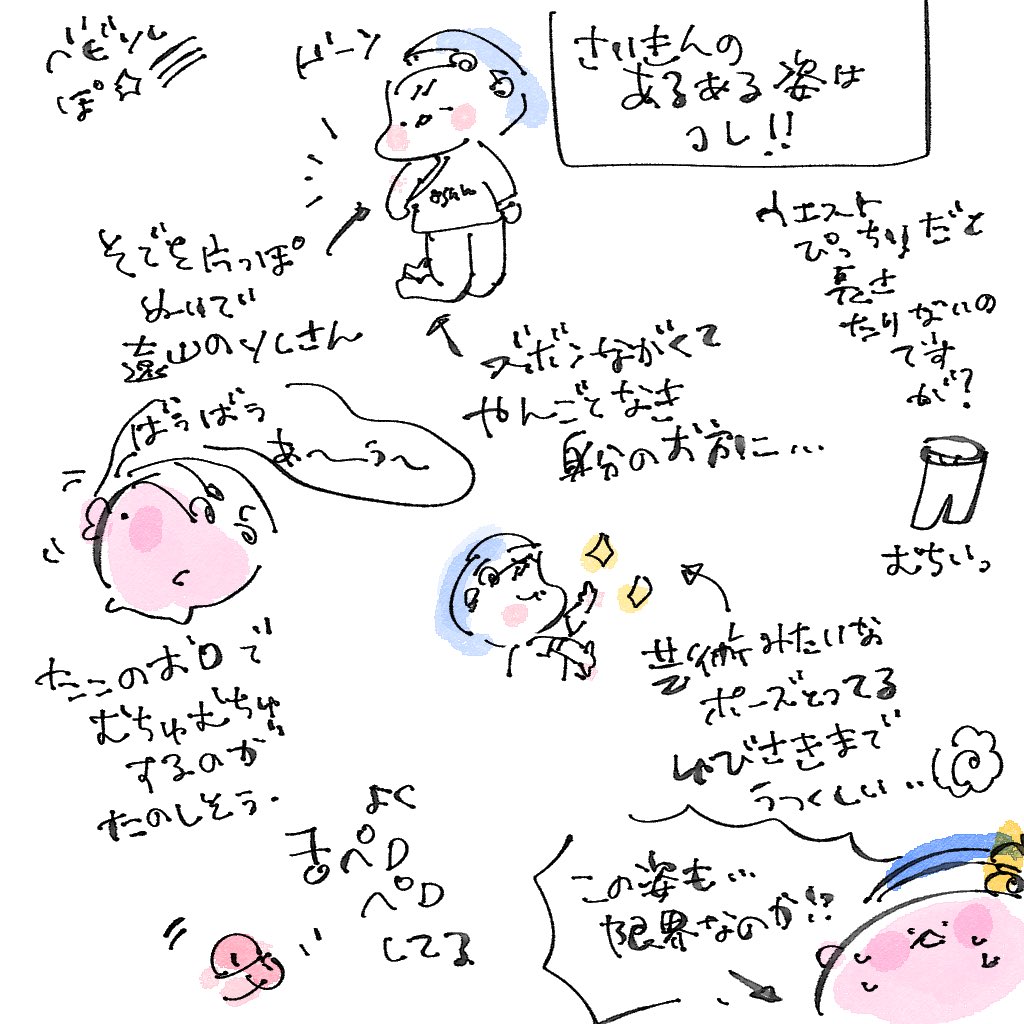 さいきんの
あるある姿は
コレ!!
ベビソレ
ぽ☆
ドーン
そでを片っぽ
ぬいで
遠山のソレさん
ズボンながくて
やんごてなき
身分のお方に…
ウエスト
ぴっちりだと
長さ
たりないの
です
が?
むちぃっ
ばぅばぅ
あ〜う〜
たこのお口で
むちゅむちゅ
するのが
たのしそう.
芸術みたいな
ポーズとってる
ゆびさきまで
うつくしい‥
よく
舌ペロ
ペロ
してる
この姿も…
限界なのか!?